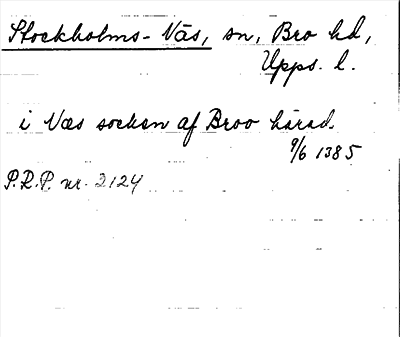 Stockholms-Näs, sn, Bro hd,
Upps. l.
i Næs socken af Broo härad.
9/6 1385
P.R.P. nr. 2124